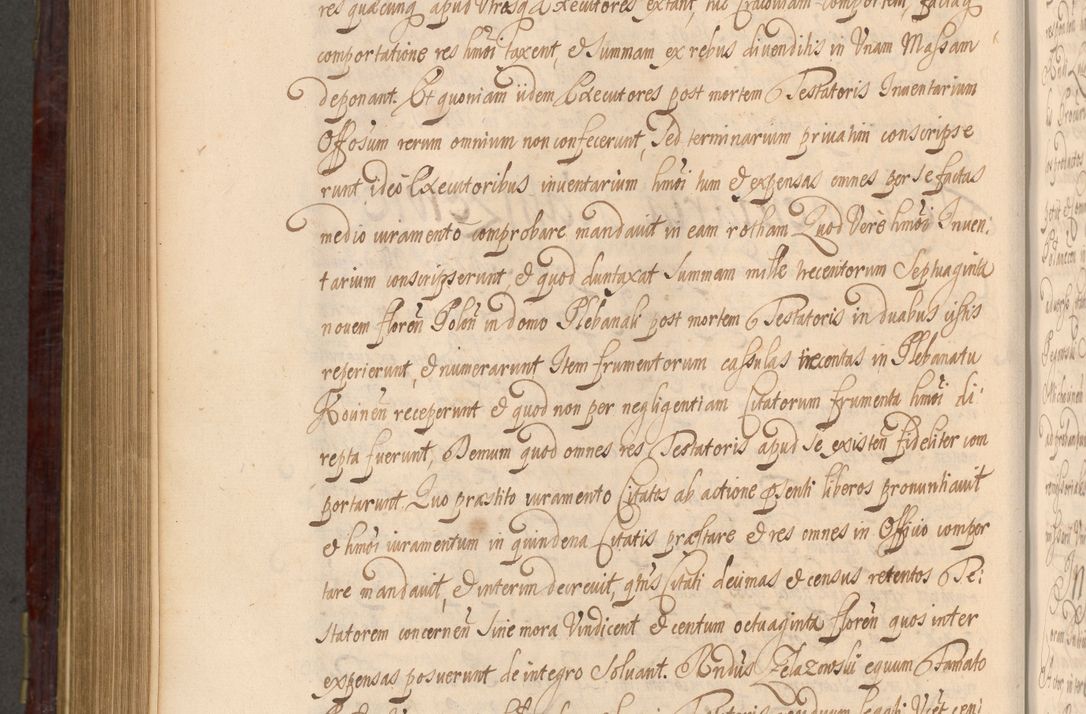 res quæcunq apud Utrosq Executores extant, huc Cracoviam comportent, factaq
comportatione res hmoi taxent, et Summam ex rebus divenditis in Unam Massam
deponant. Et quoniam iidem Executores post mortem Testatoris Inventarium
Offosum rerum omnium non confecerunt, Sed terminarium privatim conscripse
runt ideo Executoribus inventarium hmoi tum et expensas omnes per se factas
medio iuramento comprobare mandavit in eam rotham Quod Vere hmoi Inven:
tarium conscripserunt, et quod duntaxat Summam mille trecentorum Septuaginta
novem floren Polon in domo Plebanali post mortem Testatoris in duabus cistis
reperierunt, et numerarunt Item frumentorum cassulas in Plebanatu
receperunt et quod non per negligentiam Citatorum frumenta hmoi di:
repta fuerunt, Demum quod omnes res Testatoris apud se existen fideliter com
portarunt. Quo præstito iuramento Citatos ab actione pñti liberos pronuntiavit
et hmoi iuramentum in quindena Citatis præstare et res omnes in Officio compor
tare mandavit, et interim decrevit, qtñs Citati decimas et census retentos Te:
statorem concernen Sine mora Vindicent et centum octuaginta floren quos inter
expensas posuerunt de integro Solvant. Rndus Zelazowski equum Famato